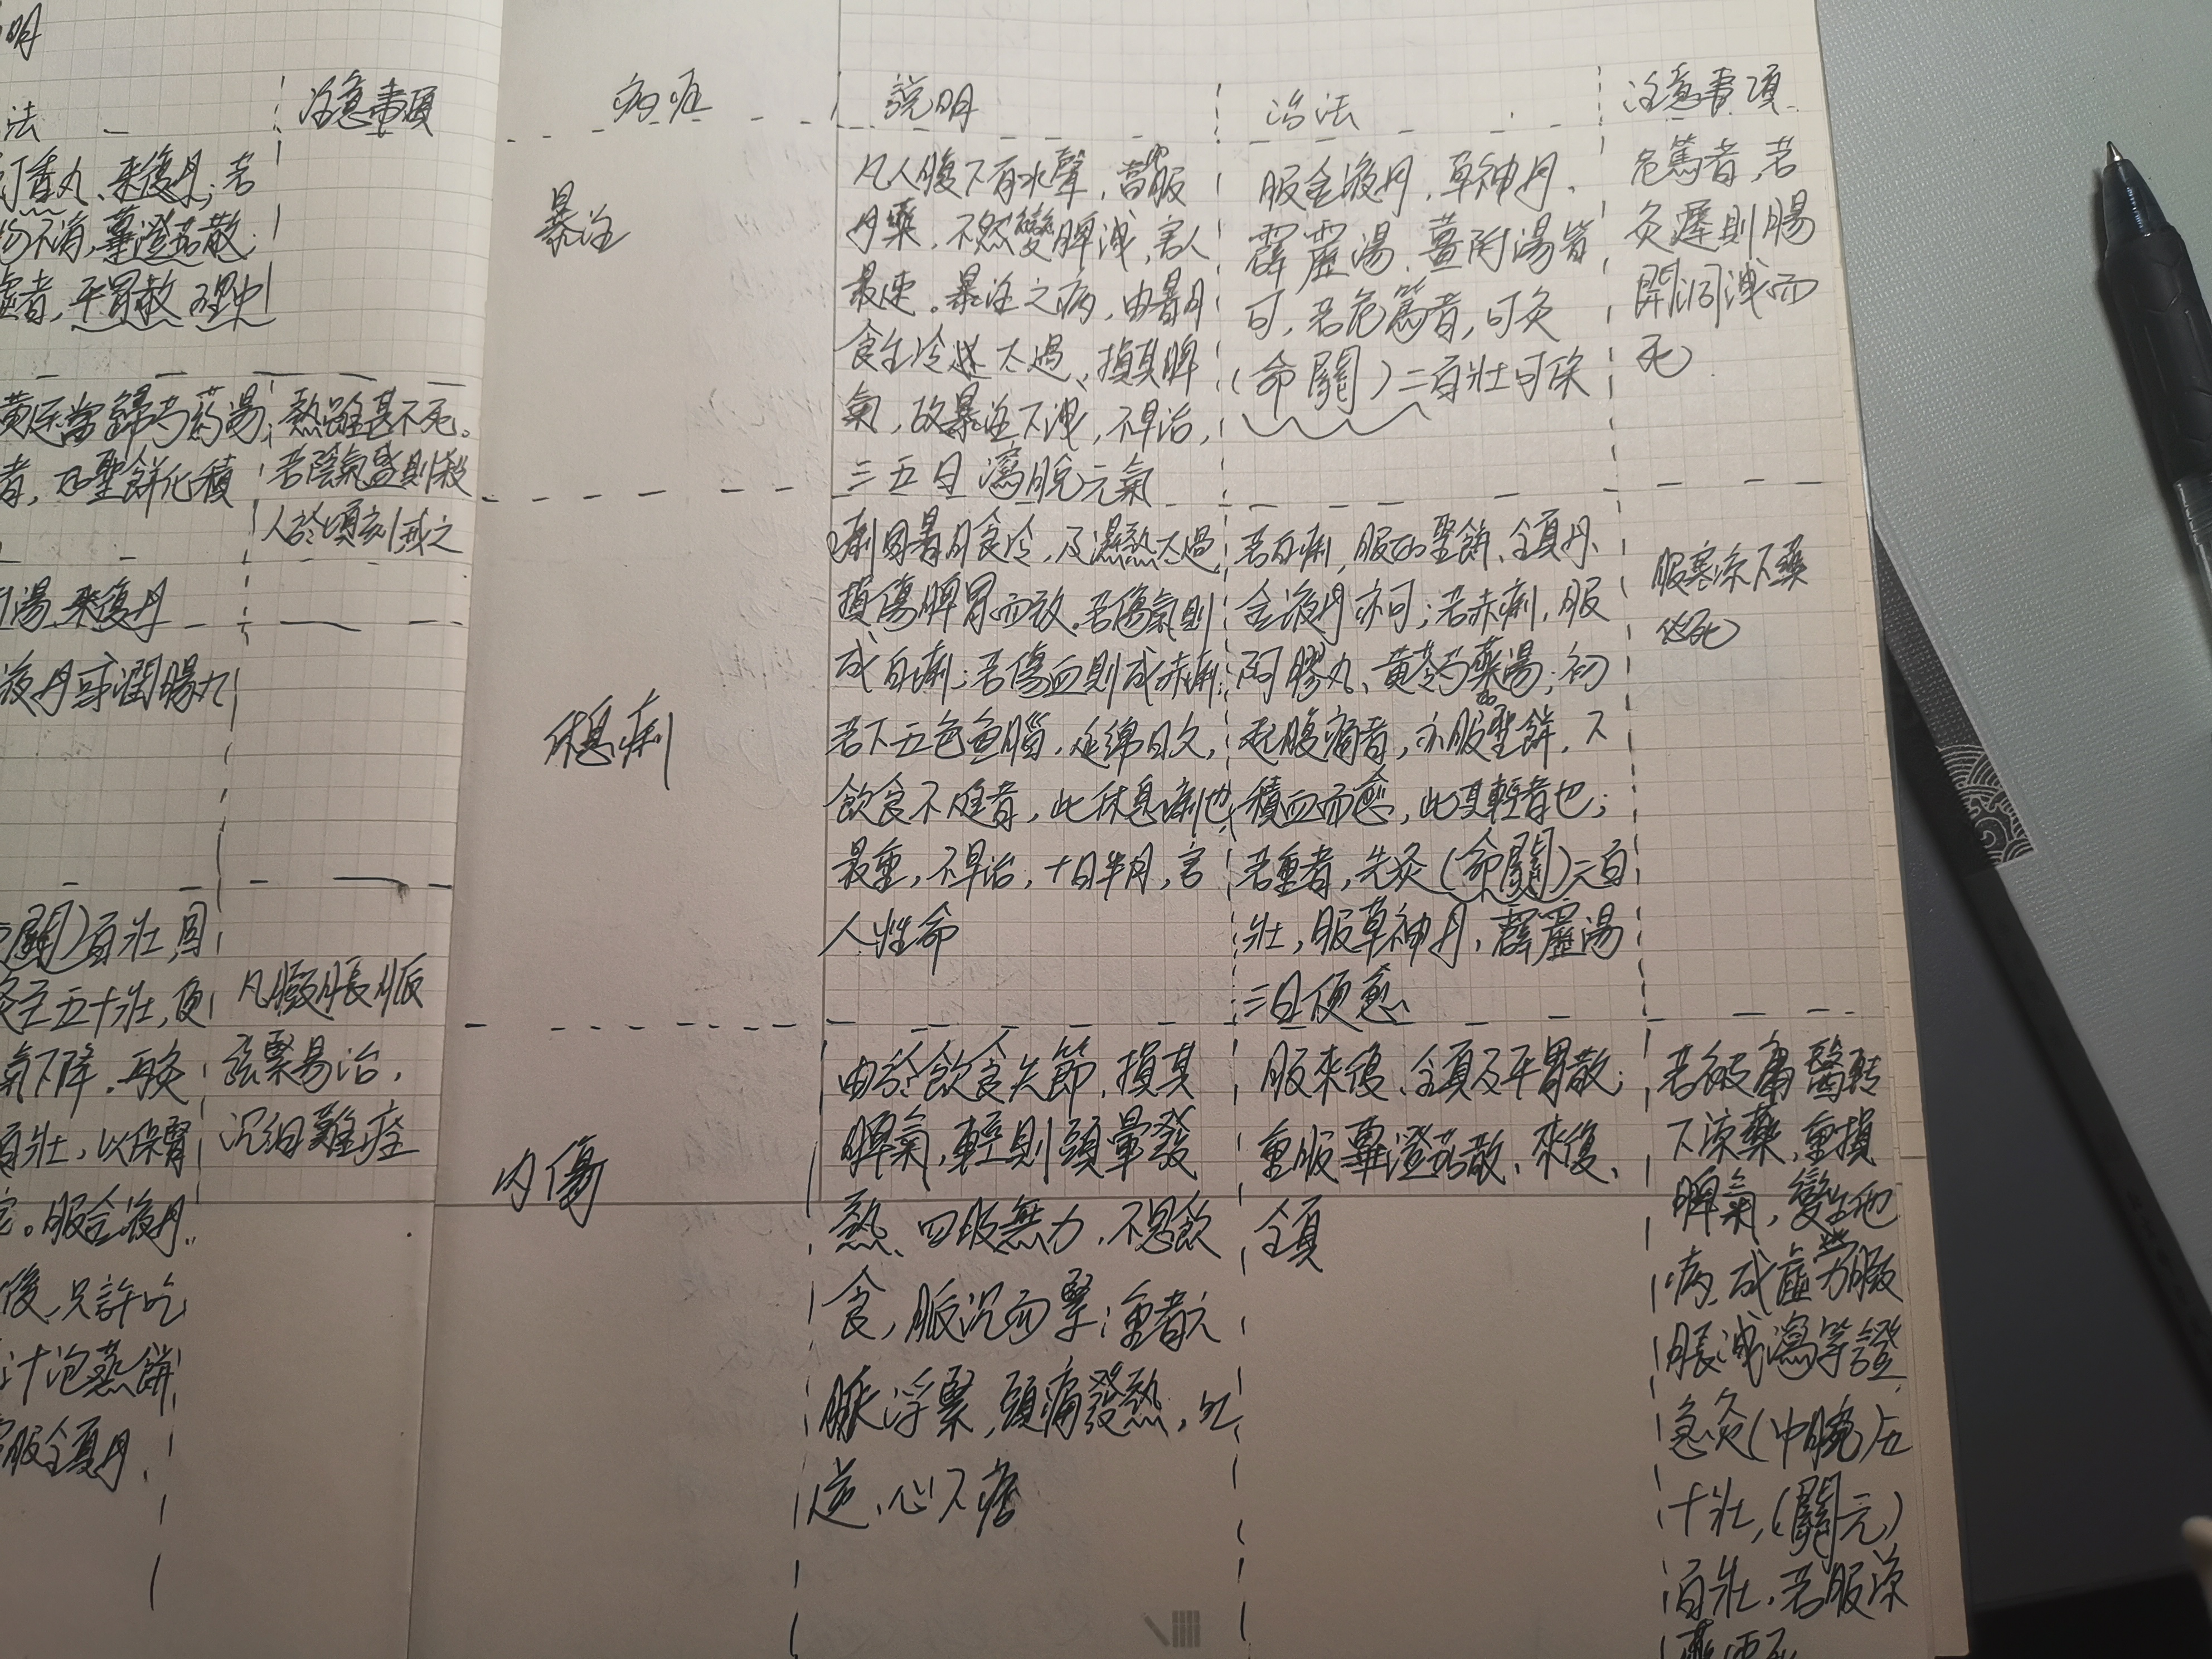 明
法
丁香丸、來復丹；若
不消，蓽澄茄散；
虛者，平胃散、理中
黃連當歸芍藥湯；
者，如聖餅化積
湯、來復丹
液丹或潤腸丸
關）百壯，固
灸至五十壯，便
氣下降，再灸
百壯，以保腎
。服金液丹、
後，只許吃
汁泡蒸餅
服全真丹、
注意事項
熱雖甚不死。
若陰氣盛則殺
人於頃刻，戒之
凡臌脹脈
弦緊易治，
沉細難痊
病症
說明
治法
注意事項
暴注
凡人腹下有水聲，當即服
丹藥，不然變脾洩，害人
最速。暴注之病，由暑月
食生冷太過，損其脾
氣，故暴注下洩，不早治，
三五日瀉脫元氣
服金液丹、草神丹、
霹靂湯、薑附湯皆
可，若危篤者，可灸
（命關）二百壯可保
危篤者，若
灸遲則腸
開洞洩而
死
休息痢
痢因暑月食冷，及濕熱太過，
損傷脾胃而致。若傷氣則
成白痢；若傷血則成赤痢；
若下五色魚腦，延綿日久，
飲食不進者，此休息痢也，
最重，不早治，十日半月，害
人性命
若白痢，服如聖餅、全真丹、
金液丹亦可；若赤痢，服
阿膠丸、黃芩芍藥湯；初
起腹痛者，亦服如聖餅，下
積血而愈，此其輕者也；
若重者，先灸（命關）二百
壯，服草神丹、霹靂湯
三日便愈
服寒涼下藥
必死
內傷
由於飲食失節，損其
脾氣，輕則頭暈發
熱、四肢無力，不思飲
食，脈沉而緊；重者六
脈浮緊，頭痛發熱，吐
逆、心下痞
服來復、全真及平胃散；
重服蓽澄茄散、來復、
全真
若被庸醫轉
下涼藥，重損
脾氣，變生他
病，成虛勞臌
脹洩瀉等證，
急灸（中脘）五
十壯，（關元）
百壯，若服涼
藥